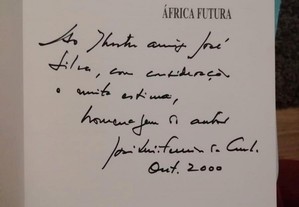 ÁFRICA FUTURA
Ao Ilustre amigo José
Silva, com consideração
e muita estima,
homenagem do autor
José Luis Ferreira da
Out. 2000